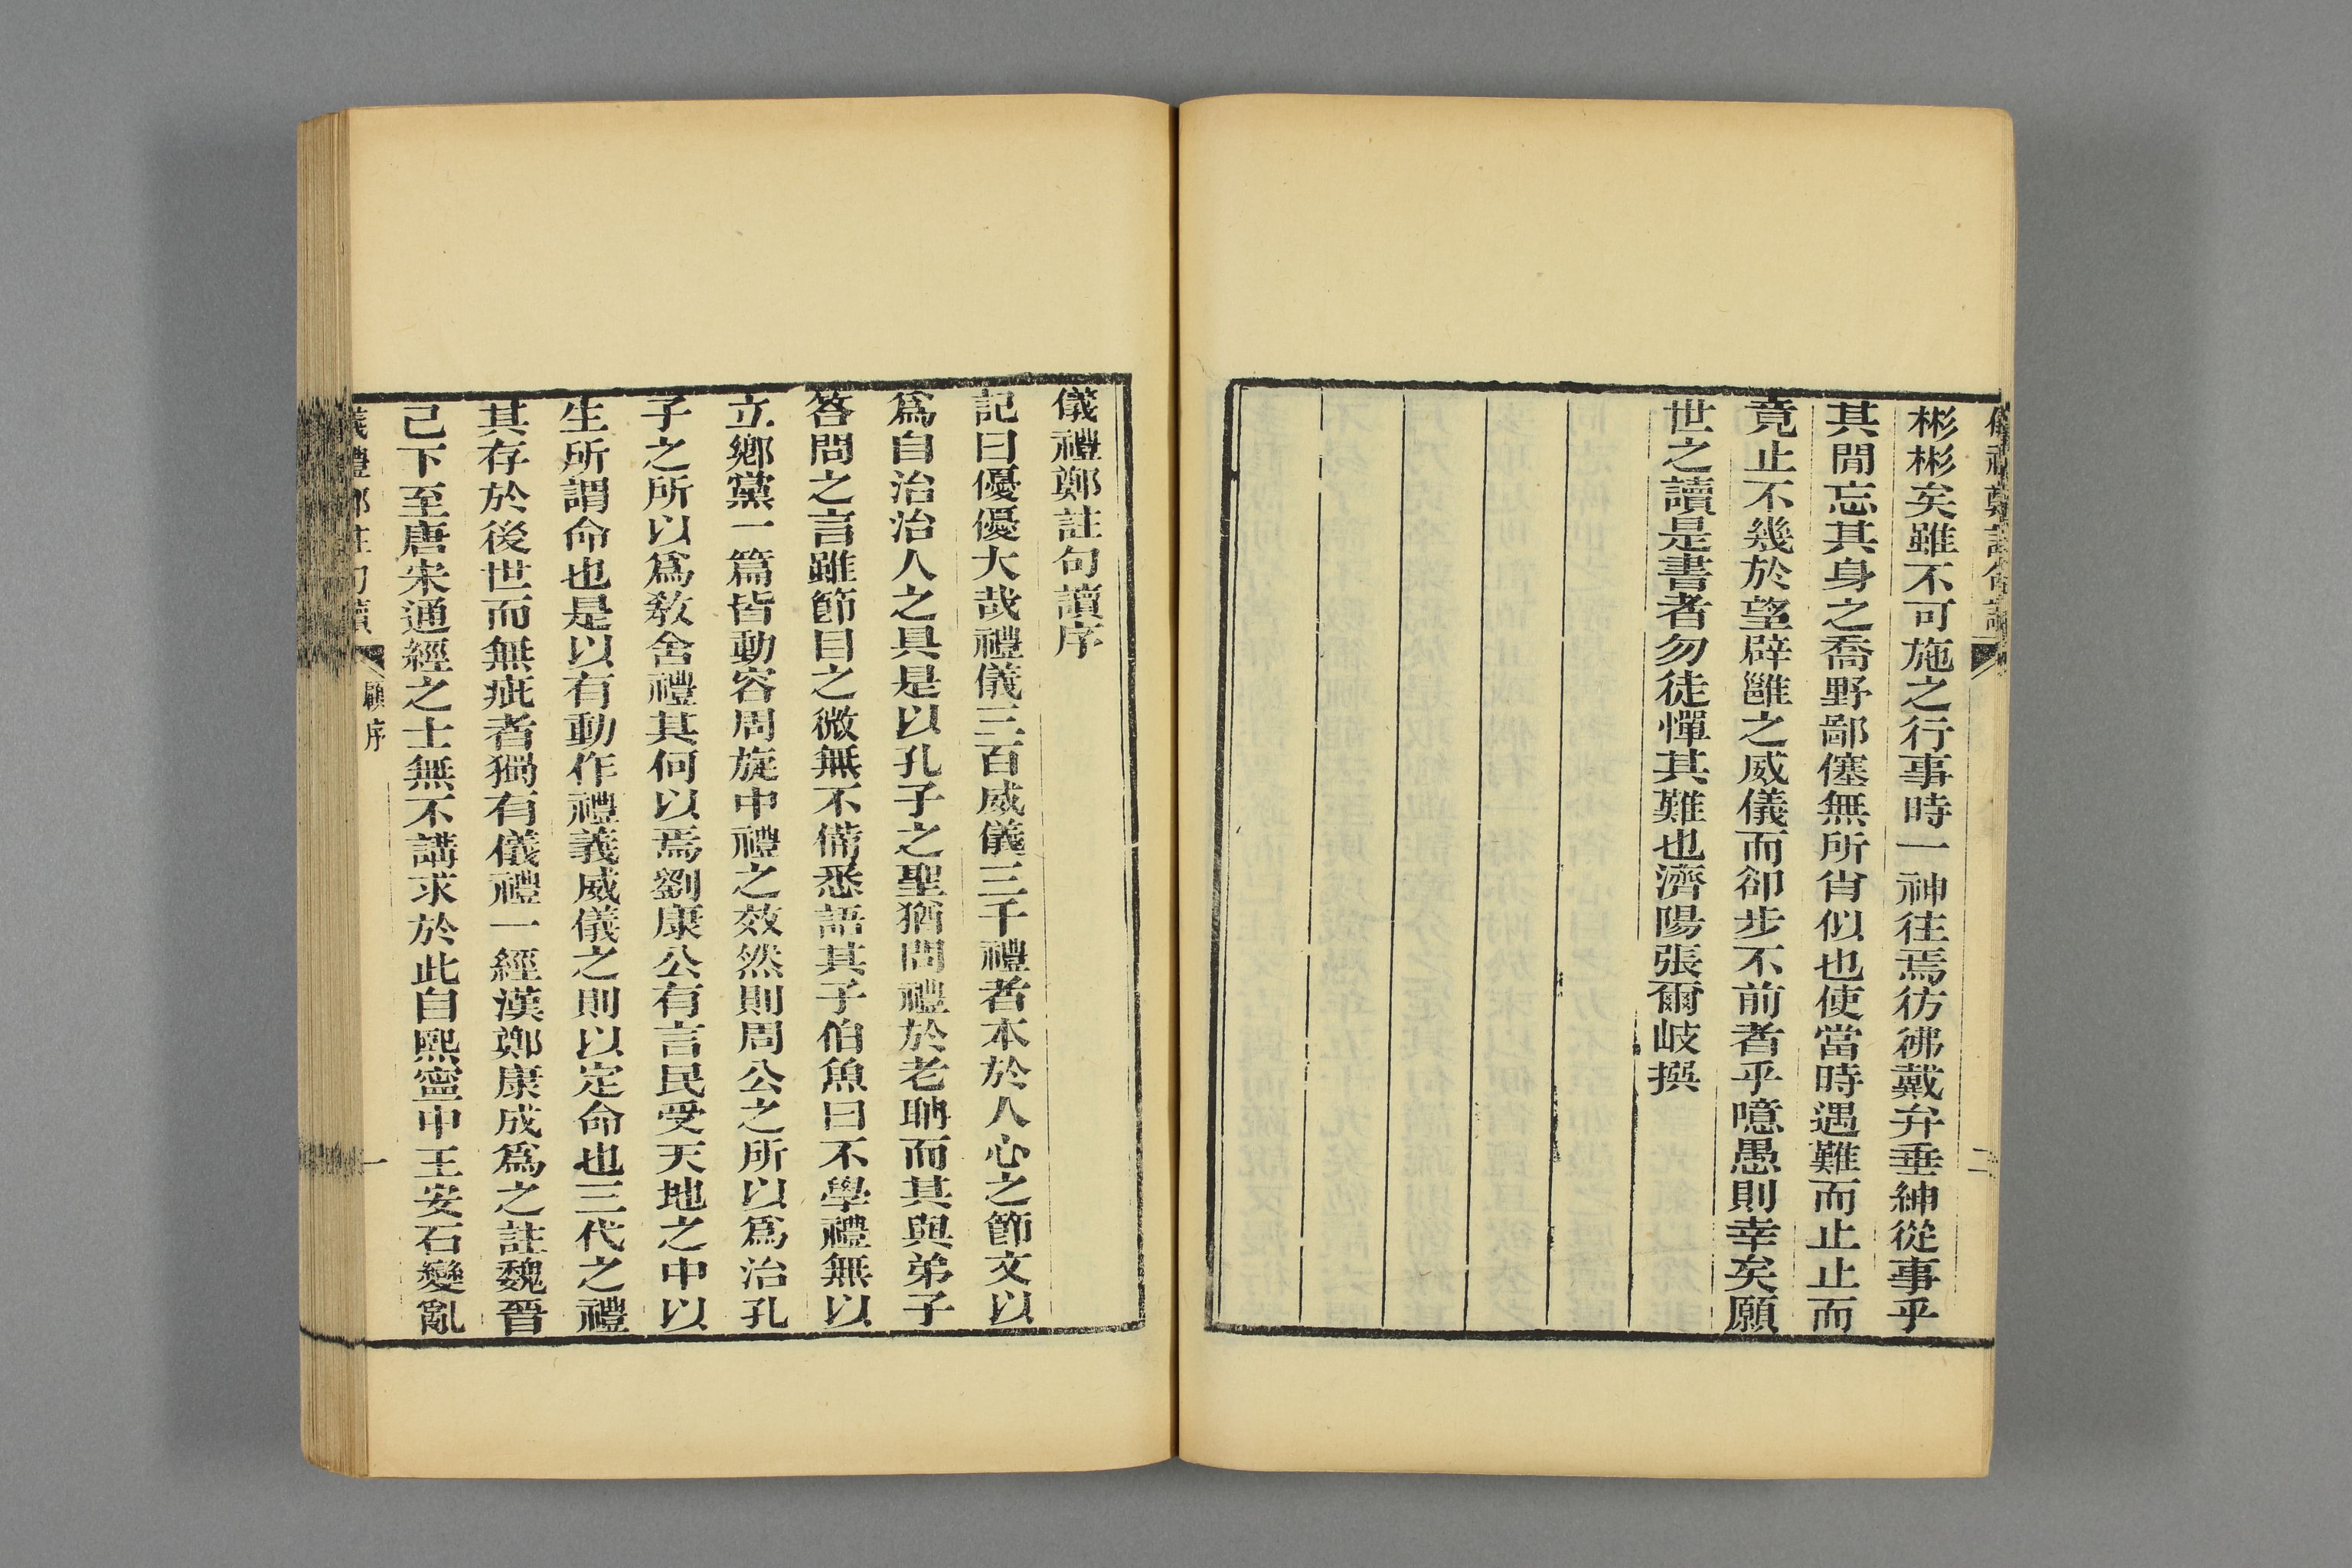 儀禮鄭註句讀
二
彬彬矣雖不可施之行事時一神往焉彷彿戴弁垂紳從事乎
其閒忘其身之喬野鄙僿無所肖似也使當時遇難而止止而
竟止不幾於望辟雝之威儀而卻步不前者乎噫愚則幸矣願
世之讀是書者勿徒憚其難也濟陽張爾岐撰
儀禮鄭註句讀序
記曰優優大哉禮儀三百威儀三千禮者本於人心之節文以
爲自治治人之具是以孔子之聖猶問禮於老聃而其與弟子
答問之言雖節目之微無不備悉語其子伯魚曰不學禮無以
立鄉黨一篇皆動容周旋中禮之效然則周公之所以爲治孔
子之所以爲敎舍禮其何以焉劉康公有言民受天地之中以
生所謂命也是以有動作禮義威儀之則以定命也三代之禮
其存於後世而無疵者獨有儀禮一經漢鄭康成爲之註魏晉
已下至唐宋通經之士無不講求於此自熙寧中王安石變亂
儀禮鄭註句讀
顧序
一